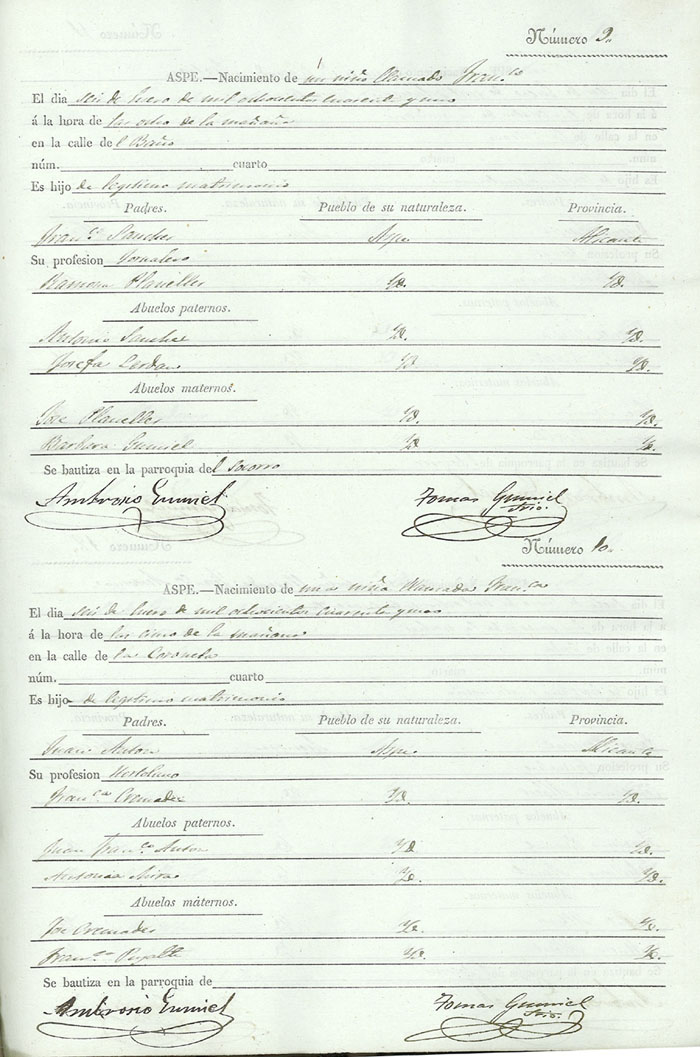 Número 9.
ASPE.—Nacimiento de un niño llamado Fran.co
El dia seis de Enero de mil ochocientos cuarenta y uno
á la hora de las ocho de la mañana
en la calle del Baño
núm. cuarto
Es hijo de legitimo matrimonio
Padres. Pueblo de su naturaleza. Provincia.
Fran.co Sanchez Aspe Alicante
Su profesion Jornalero
Ramona Planelles Yd. Yd.
Abuelos paternos.
Antonio Sanchez Yd. Yd.
Josefa Cerdan Yd. Yd.
Abuelos maternos.
Jose Planelles Yd. Yd.
Barbara Gumiel Yd. Yd.
Se bautiza en la parroquia del Socorro
Ambrosio Gumiel Tomas Gumiel
Srio.
Número 10.
ASPE.—Nacimiento de una niña llamada Fran.ca
El dia seis de Enero de mil ochocientos cuarenta y uno
á la hora de las cinco de la mañana
en la calle de la Coronela
núm. cuarto
Es hijo de legitimo matrimonio
Padres. Pueblo de su naturaleza. Provincia.
Juan Anton Aspe Alicante
Su profesion Hortelano
Fran.ca Cremades Yd. Yd.
Abuelos paternos.
Juan Fran.co Anton Yd. Yd.
Antonia Mira Yd. Yd.
Abuelos máternos.
Jose Cremades Yd. Yd.
Fran.ca Yd. Yd.
Se bautiza en la parroquia de
Ambrosio Gumiel Tomas Gumiel
Srio.